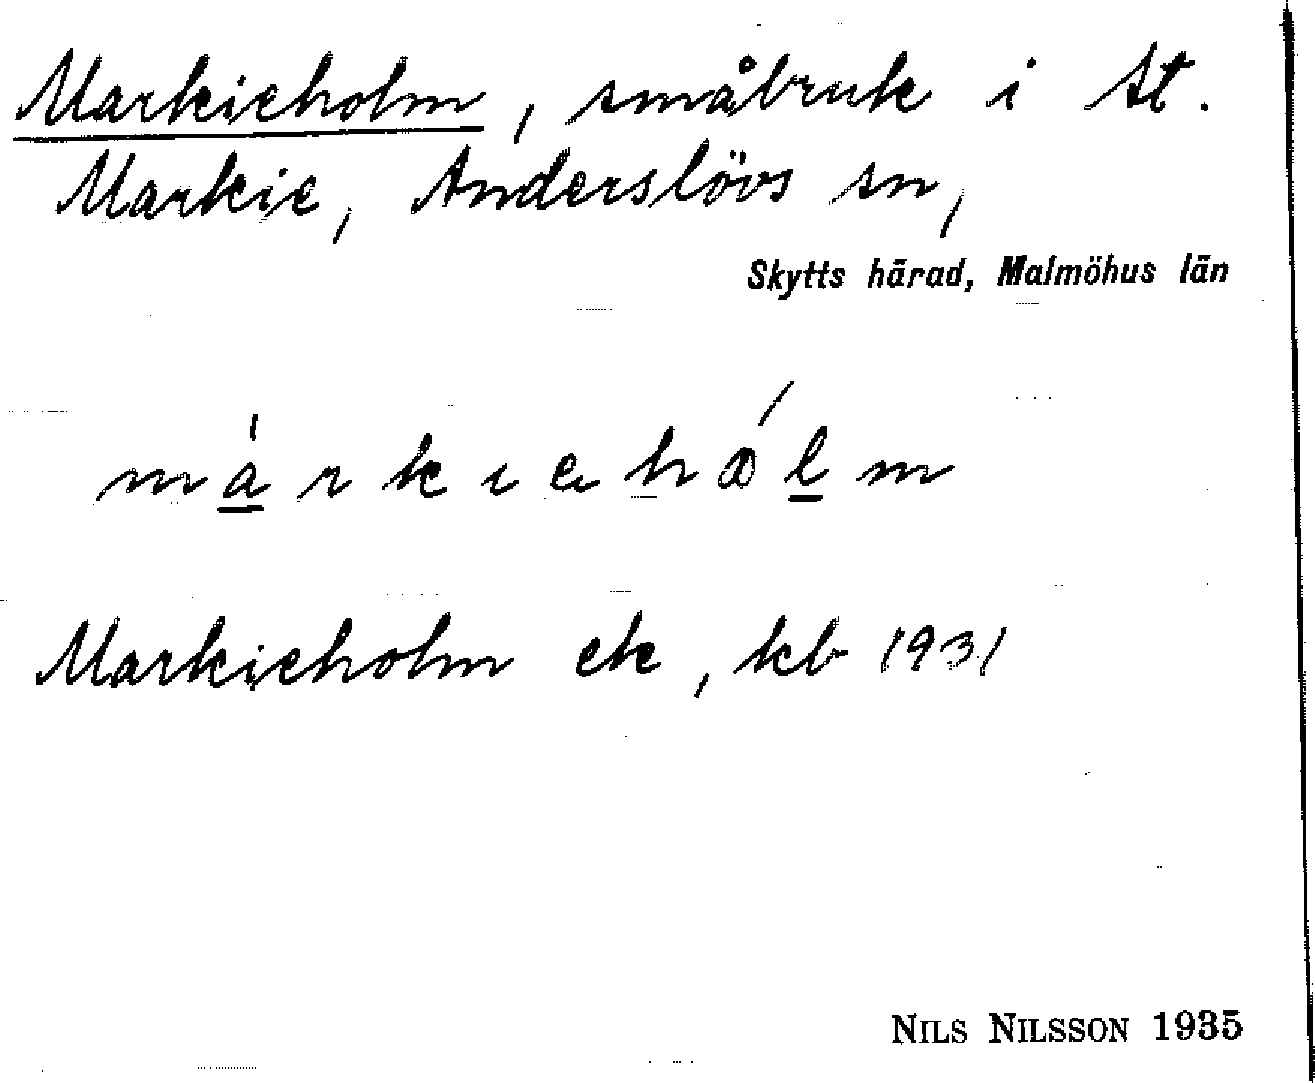 Markieholm, småbruk i St.
Markie, Anderslövs sn,
Skytts härad, Malmöhus län
Markieholm ek, kb 1931
NILS NILSSON 1935